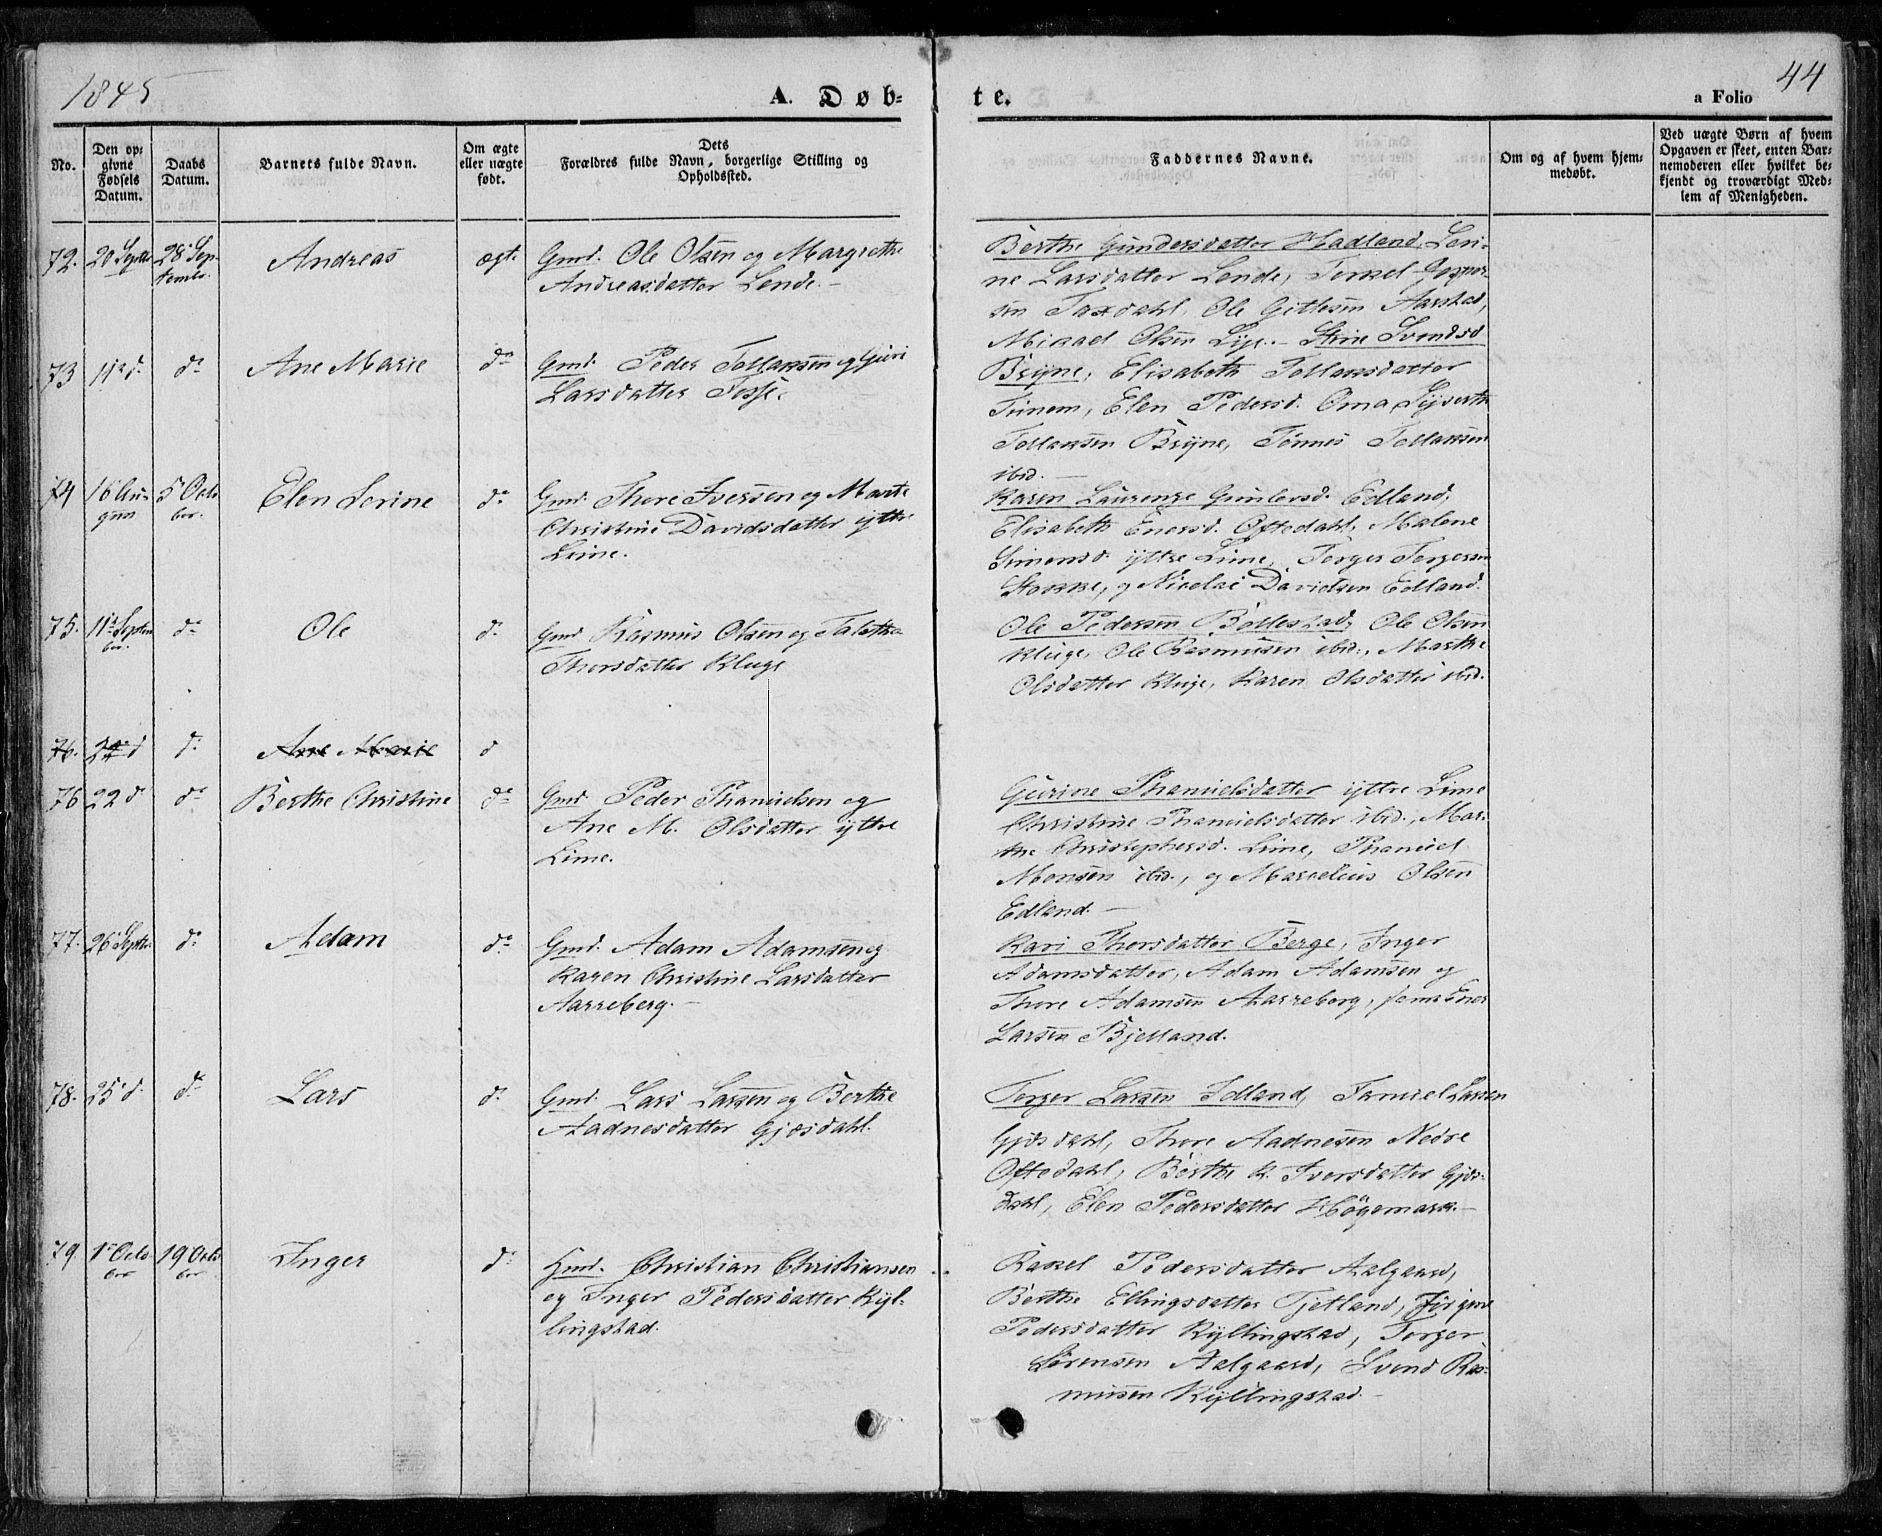 1845
A. Døb-
te.
a Folio
44
No.
Den op-
givne
Fødsels
Datum.
Daabs
Datum.
Barnets fulde Navn.
Om ægte
eller uægte
født.
Dets
Forældres fulde Navn, borgerlige Stilling og
Opholdssted.
Faddernes Navne.
Om og af hvem hjem-
medøbt.
Ved uægte Børn af hvem
Opgaven er skeet, enten Bar-
nemoderen eller hvilket be-
kjendt og troværdigt Med-
lem af Menigheden.
72. 20 Septbr 28 Sep-
tembr.
Andreas
ægte
Gmd. Ole Olsen og Margrethe
Andreasdatter Lende.-
Berthe Gundersdatter Hadland, Seri-
ne Larsdatter Lende, Torkel
sen Taxdahl, Ole Gitlesen Aarstad,
Mikael Olsen Lye. - Stine Svendsd
73 11te d. do
Ane Marie
do
Gmd. Peder Tollaksen og Guri
Larsdatter Fosse.
Bryne, Elisabeth Tollaksdatter
Tunem, Elen Pedersd. Oma, Syvert
Tollaksen Bryne, Tønnes Tollaksen
ibid.-
74 16 Au-
gust
5 Octo
ber.
Elen Serine
do
Gmd. Thore Iversen og Marte
Christine Davidsdatter yttre
Lime.
Karen Laurenze Gunlersd. Edland,
Elisabeth Enersd. Oftedahl, Malene
Simonsd. yttre Lime, Torger Torgersen
Stokke, og Nicolai Davidsen Edland.
75. 11te Septem
ber.
do
Ole
do
Gmd Rasmus Olsen og Talette
Thorsdatter Kluge
Ole Pedersen Bollestad, Ole Olsen
Kluge, Ole Rasmussen ibid., Marthe
Olsdatter Kluge, Karen Olsdatter ibid.
76. 24 d d. Ane Marie d
76 22 d. do
Berthe Christine
do
Gmd. Peder Thamielsen og
Ane M. Olsdatter yttre
Lime.
Gurine Thamielsdatter yttre Lime
Christine Thamielsdatter ibid., Mar-
the Christophersd. Lime, Thamiel
Monsen ibid., og Marcelius Olsen
Edland.-
77. 26 Septbr do
Adam
do
Gmd. Adam Adamsen og
Karen Christine Larsdatter
Aarreberg.-
Kari Thorsdatter Berge, Inger
Adamsdatter, Adam Adamsen og
Thore Adamsen Aarreberg, samt Ener
Larsen Bjelland.
78. 25 d. do
Lars
do
Gmd. Lars Larsen og Berthe
Aadnesdatter Gjesdahl.
Torger Larsen Edland, Tamiel Larsen
Gjesdahl, Thore Aadnesen Nedre
Oftedahl, Berthe K. Iversdatter Gjes-
dahl, Elen Pedersdatter Høgemark.-
79. 1ste Octo-
ber
19 Octo
ber
Inger
do
Hmd. Christian Christiansen
og Inger Pedersdatter Kyl-
lingstad.
Rakel Pedersdatter Aalgaard,
Berthe Ellingsdatter Tjetland, Jørgine
Pedersdatter Kyllingstad, Torger
Sørensen Aalgaard, Svend Ras-
mussen Kyllingstad.-